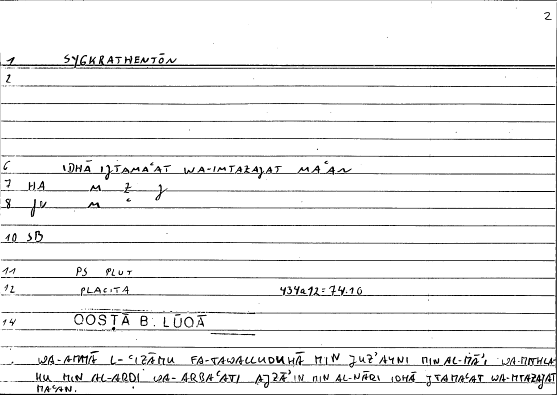 2
1 SYGKRATHENTŌN
2
6 IDHĀ IJTAMAʿAT WA-IMTAZAJAT MAʿAN
7 HA M Z J
8 JU M ʿ
10 SB
11 PS PLUT
12 PLACITA 434a12=74.10
14 QOSṬĀ B. LŪQĀ
WA-AMMĀ L-ʿIẒĀMU FA-TAWALLUDUHĀ MIN JUZʾAYNI MIN AL-MĀʾI WA-MITHLA-
HU MIN AL-ARḌI WA-ARBAʿATI AJZĀʾIN MIN AL-NĀRI IDHĀ JTAMAʿAT WA-MTAZAJAT
MAʿAN.